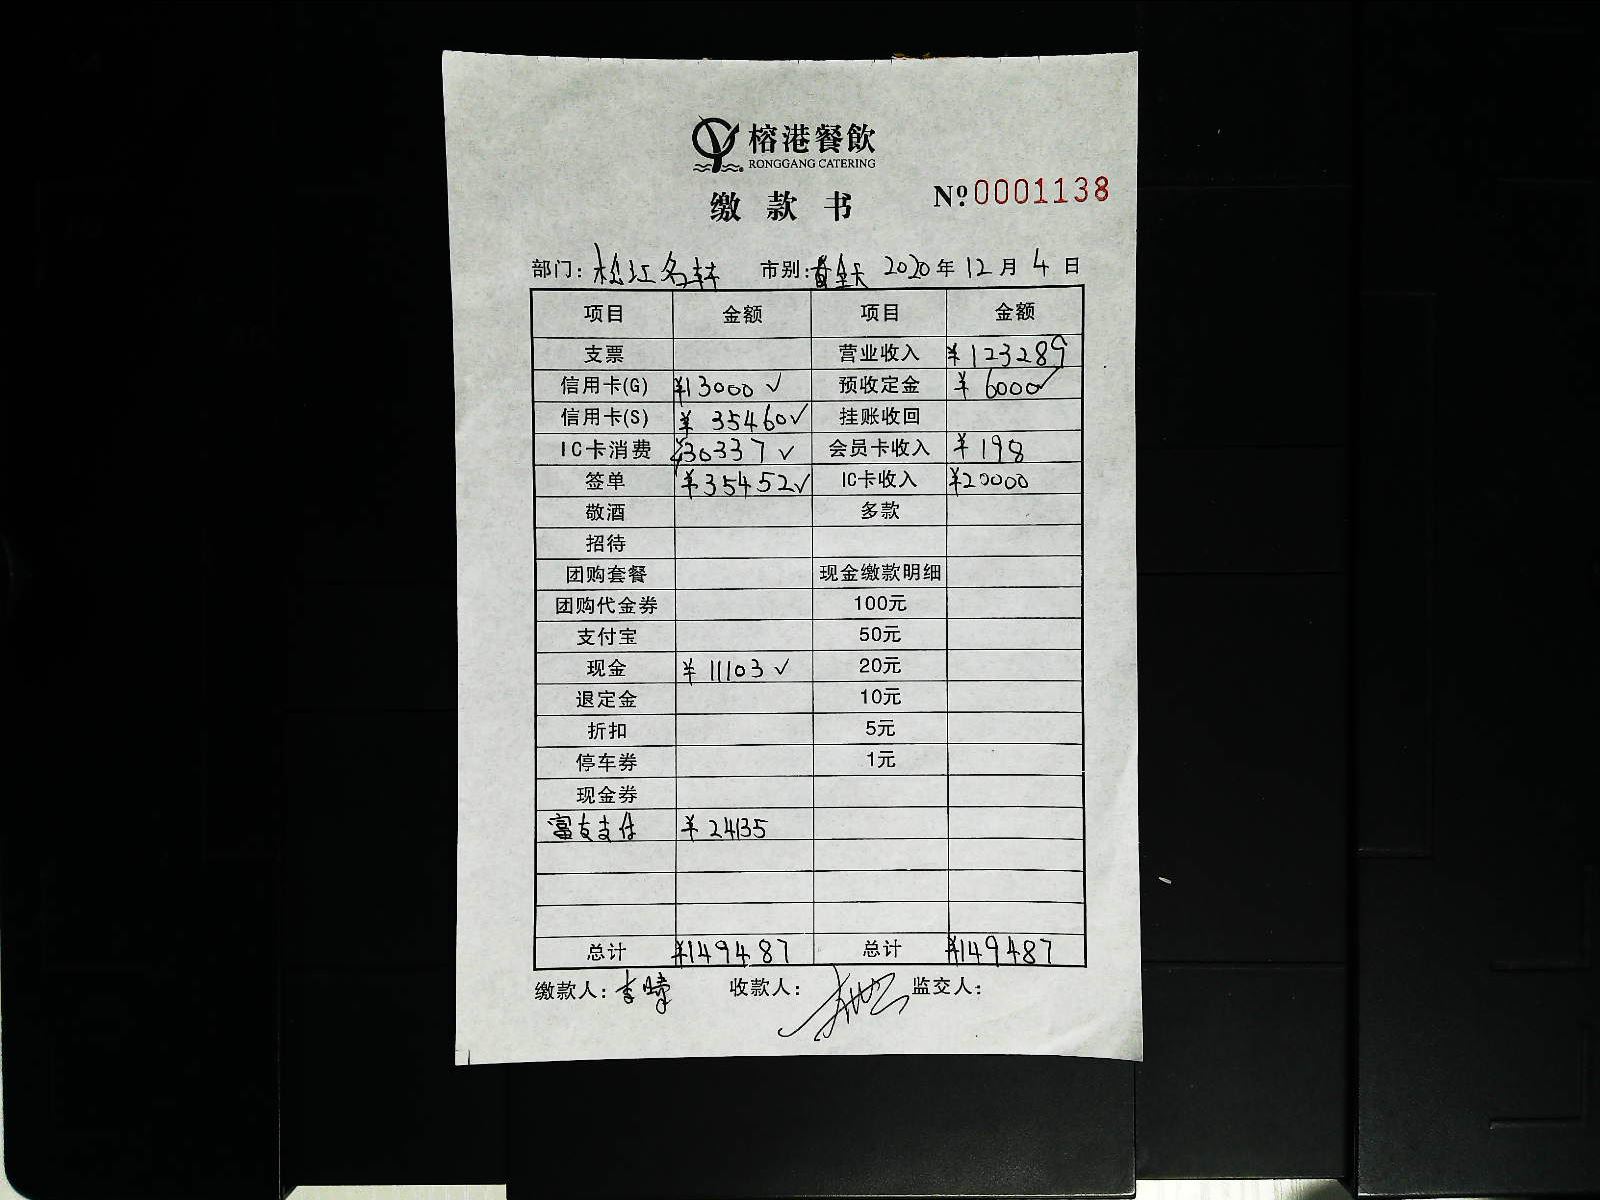 榕港餐飲
RONGGANG CATERING
缴款书
No.0001138
部门：松江名轩 市别：全天 2020年12月4日
项目 金额 项目 金额
支票 营业收入 ¥123289
信用卡(G) ¥13000✓ 预收定金 ¥6000✓
信用卡(S) ¥35460✓ 挂账收回
IC卡消费 ¥30337✓ 会员卡收入 ¥198
签单 ¥35452✓ IC卡收入 ¥20000
敬酒 多款
招待
团购套餐 现金缴款明细
团购代金券 100元
支付宝 50元
现金 ¥11103✓ 20元
退定金 10元
折扣 5元
停车券 1元
现金券
富友支付 ¥24135
总计 ¥149487 总计 ¥149487
缴款人：李 收款人： 监交人：